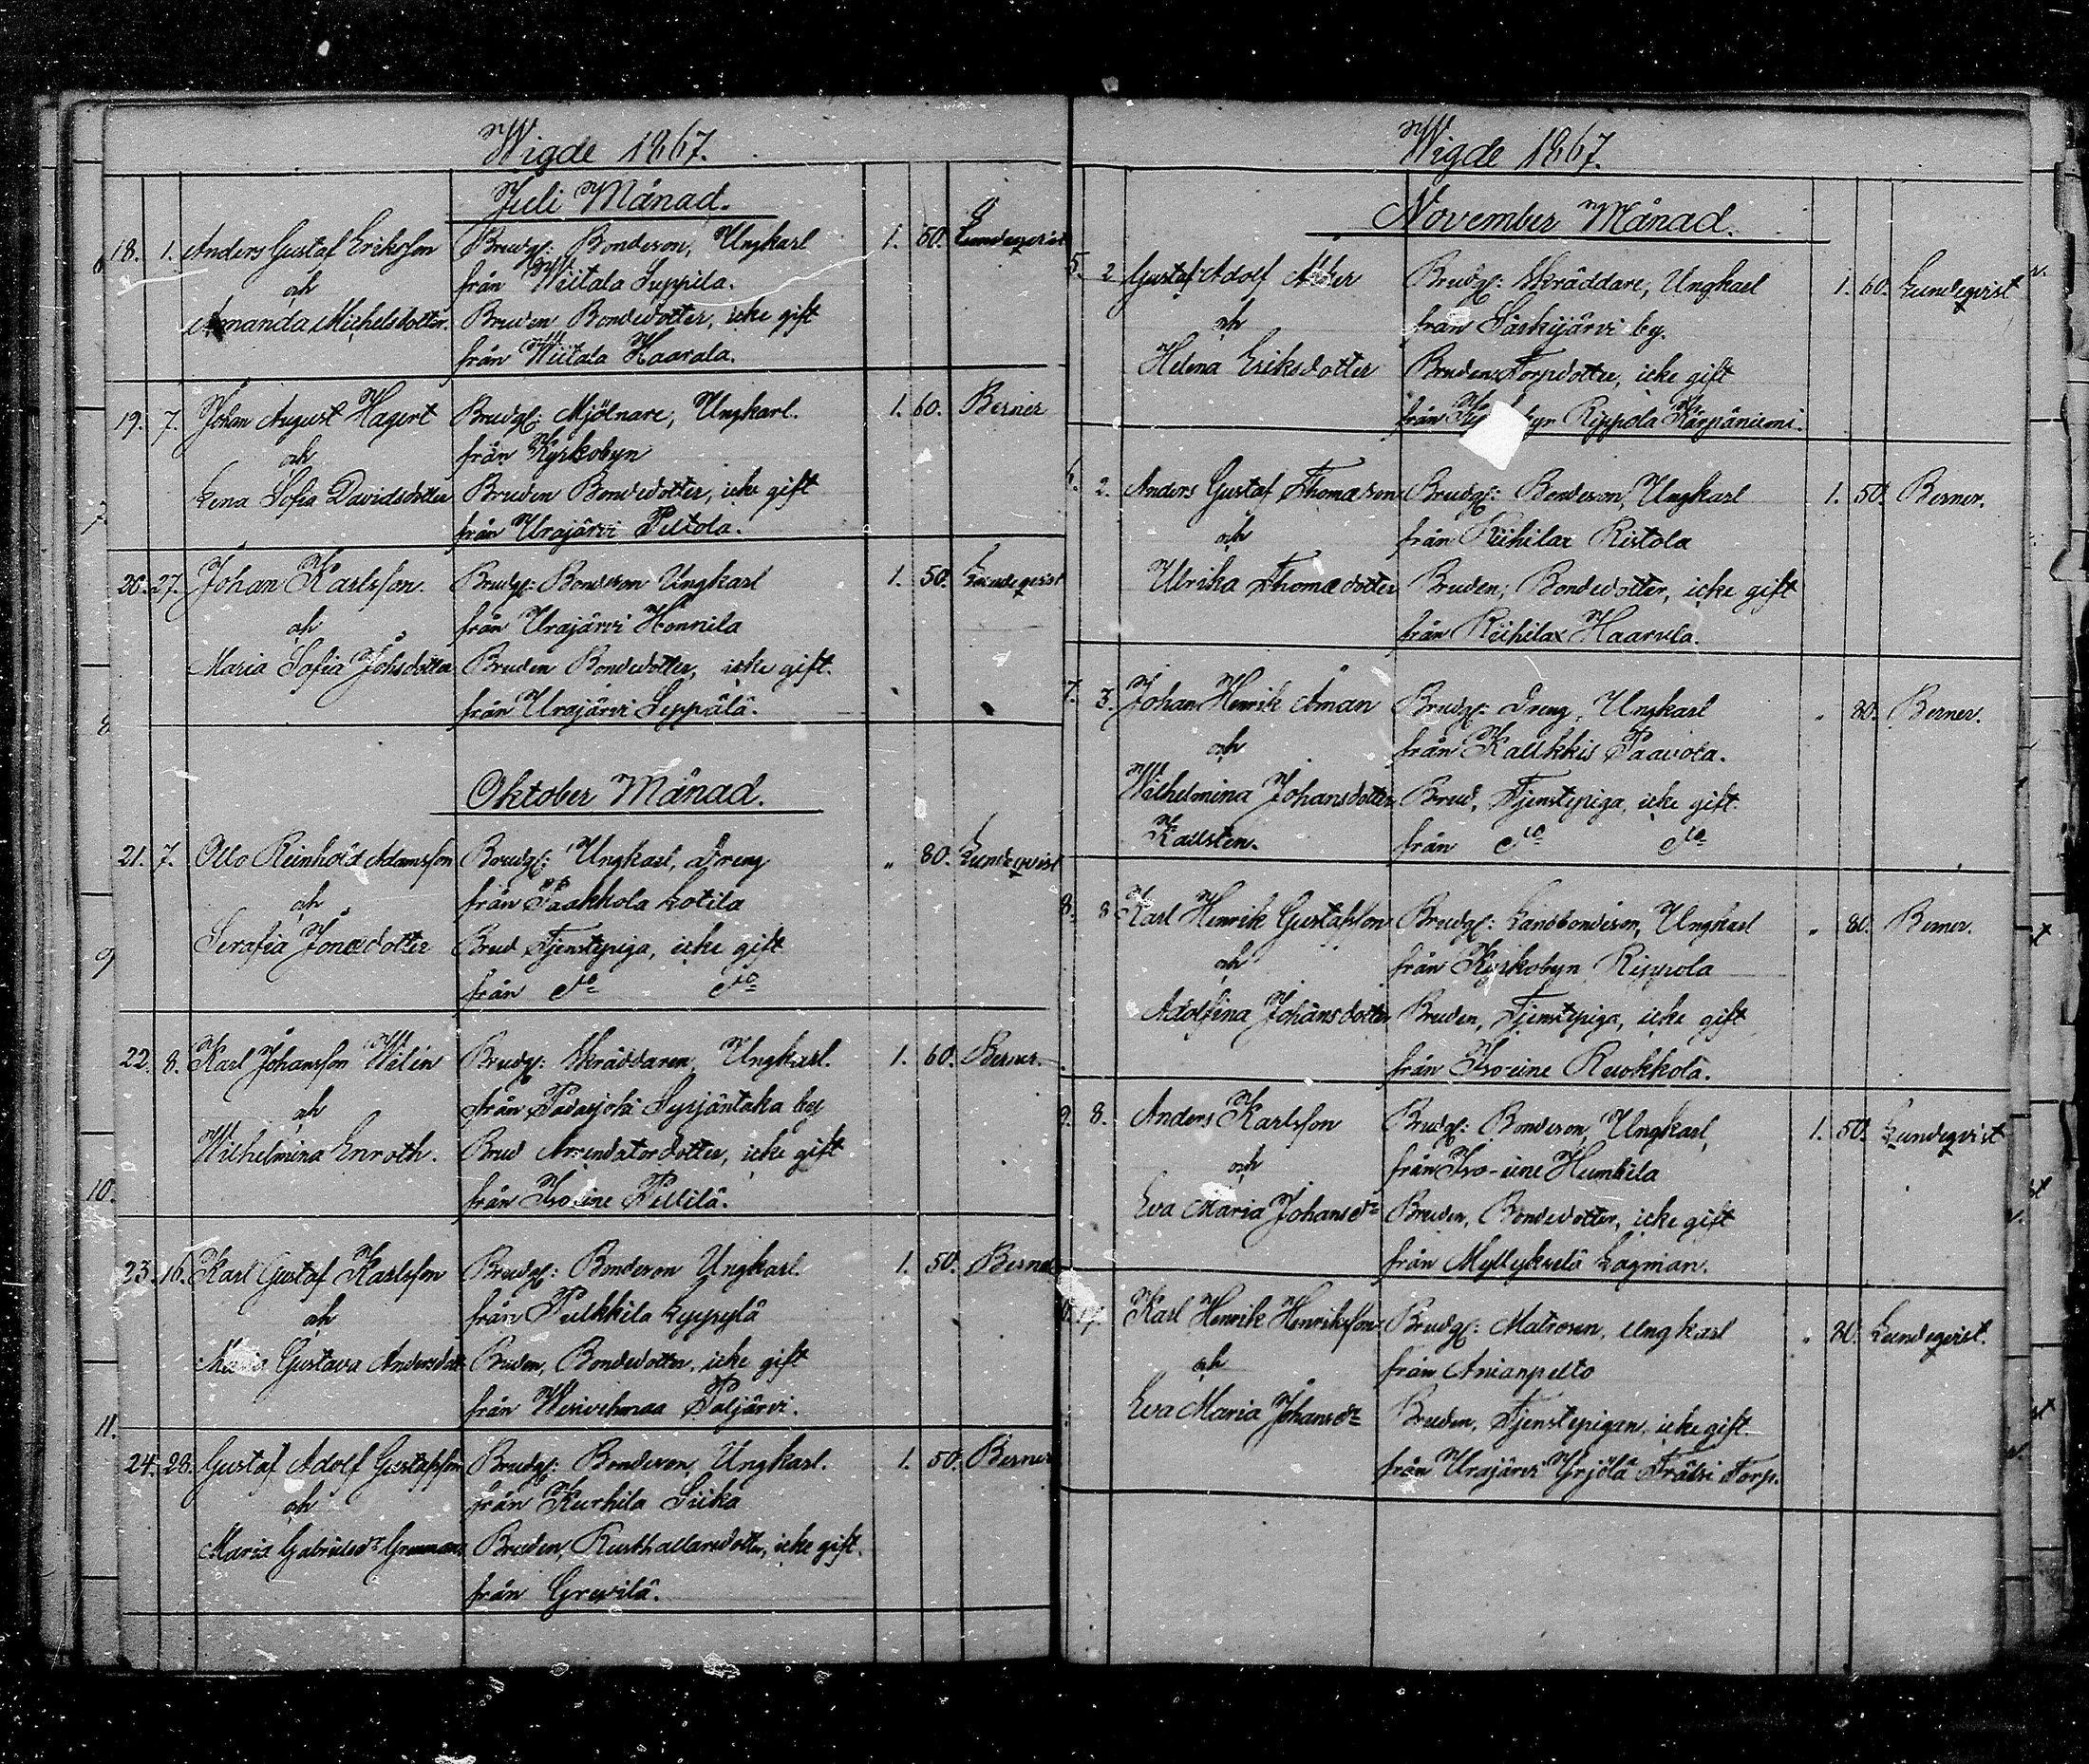 Wigde 1867.
Juli Månad.
18. 1. Anders Gustaf Eriksson Brudg: Bondeson, Ungkarl 1. 50. Lundeqvist
och från Wiitala Seppila.
Amanda Michelsdotter. Bruden Bondedotter, icke gift
från Wiitala Haarala.
19. 7. Johan August Hagert Brudg: Mjölnare, Ungkarl. 1. 60. Berner
och från Kyrkobyn
Lena Sofia Davidsdotter Bruden Bondedotter, icke gift
från Urajärvi Peltola.
20. 27. Johan Karlsson. Brudg: Bondeson Ungkarl 1. 50. Lundeqvist
och från Urajärvi Honnila
Maria Sofia Johsdotter Bruden Bondedotter, icke gift.
från Urajärvi Seppälä.
Oktober Månad.
21. 7. Otto Reinhold Adamsson Brudg: Ungkarl, Dreng " 80. Lundeqvist
och från Paakkola Lotila
Serafia Jonædotter Brud Tjenstepiga, icke gift
från do do
22. 8. Karl Johansson Walin Brudg: Skräddaren, Ungkarl. 1. 60. Berner.
och från Padasjoki Syrjäntaka by
Wilhelmina Enroth. Brud Arrendatordotter, icke gift
från Iso-eine Pellilä.
23. 16. Karl Gustaf Karlsson Brudg: Bondeson Ungkarl. 1. 50. Berner
och från Pulkkila Lyyrylä
Maria Gustava Andersdott: Bruden, Bondedotter, icke gift
från Wesivehmaa Paljärvi.
24. 28. Gustaf Adolf Gustafsson Brudg: Bondeson, Ungkarl. 1. 50. Berner
och från Kurhila Siika
Maria Gabrielsdr Bruden, Rusthallaredotter, icke gift.
från Grevilä.
Wigde 1867.
November Månad.
5. 2 Gustaf Adolf Brudg: Skräddare, Ungkarl 1. 60. Lundeqvist
och från Särkijärvi by.
Helena Eriksdotter Bruden Torpdotter, icke gift
från Rippola Kärpäniemi.
6. 2. Anders Gustaf Thomason Brudg: Bondeson, Ungkarl 1. 50. Berner.
och från Riihilax Ristola
Ulrika Thomædotter Bruden, Bondedotter, icke gift
från Riihilax Haarula.
7. 3. Johan Henrik Åman Brudg: Dreng, Ungkarl " 80. Berner.
och från Kalkkis Paavola.
Wilhelmina Johansdotter Brud, Tjenstepiga, icke gift.
Kallsten. från do do
8. 8 Karl Henrik Gustafsson Brudg: Landbondeson, Ungkarl " 80. Berner.
och från Kyrkobyn Rippola
Adolfina Johansdotter Bruden, Tjenstepiga, icke gift
från Iso-eine Ruokkola.
9. 8. Anders Karlsson Brudg: Bondeson, Ungkarl, 1. 50. Lundeqvist
och från Iso-eine Humbila
Eva Maria Johansdr Bruden, Bondedotter, icke gift
från Myllykselä Lagman.
Karl Henrik Henriksson Brudg: Matrosen, Ungkarl " Lundeqvist.
och från Anianpelto
Eva Maria Johansdr Bruden, Tjenstepigan, icke gift
från Urajärvi Yrjölä Frälsi Torp.
7
8
9
10.
11.